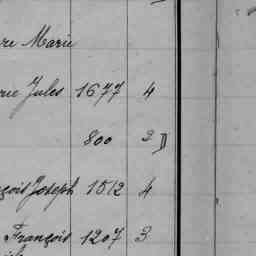 re Marie
rie Jules 1677 4
800 2
çois Joseph 1512 4
François 1207 3